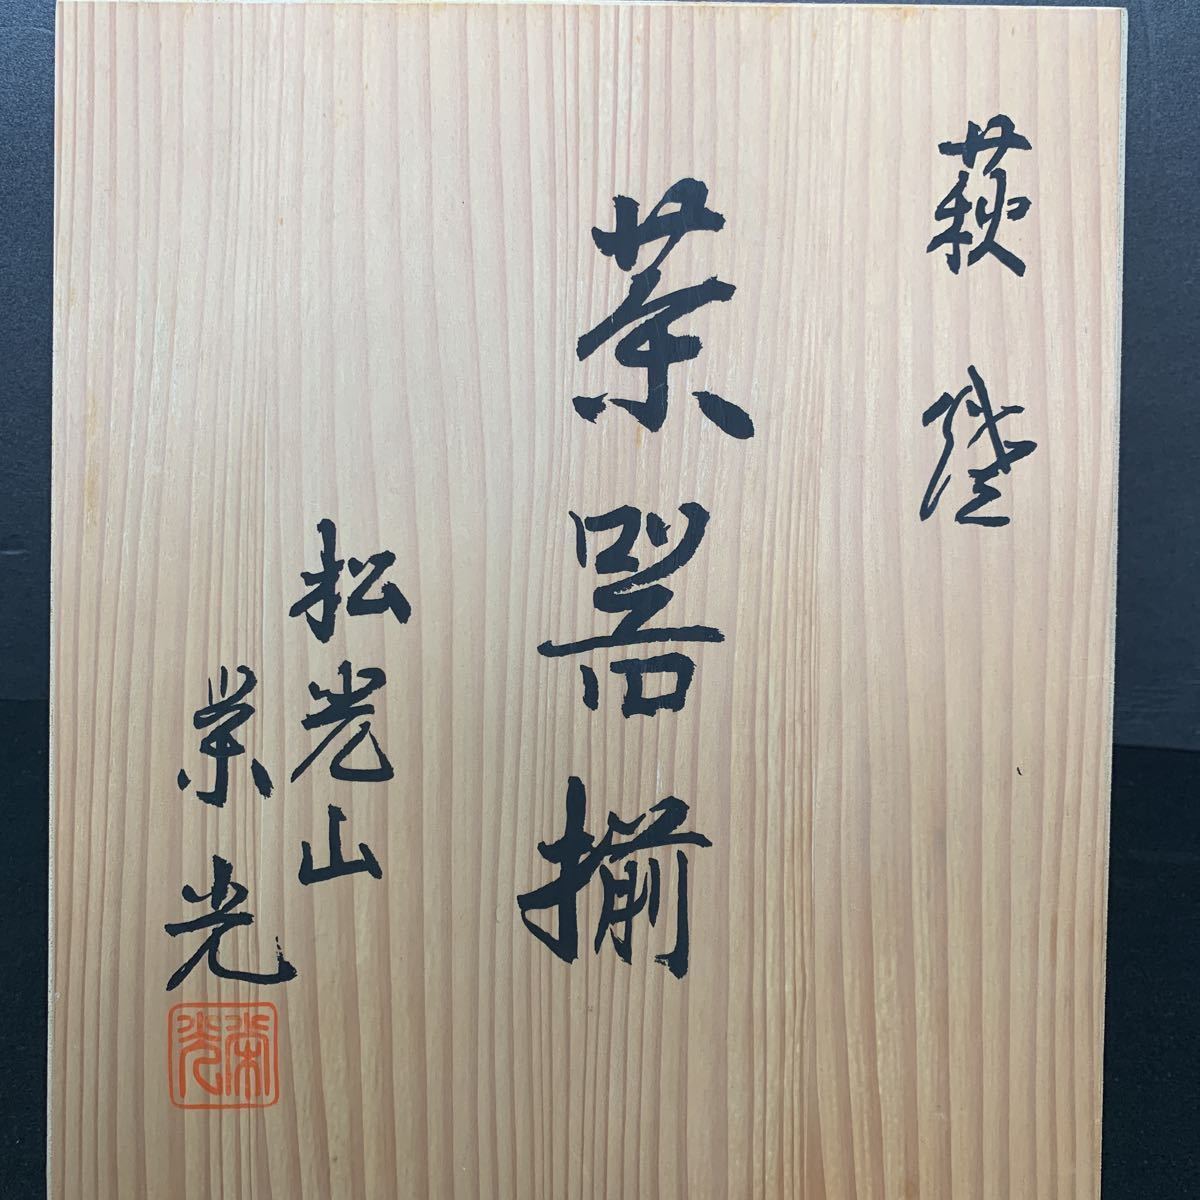 萩燈
茶器揃
松光山
栄光
栄光